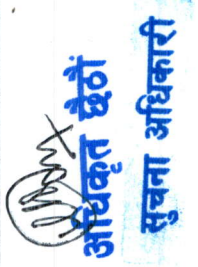 अधिकृत छैठौं
सुचना अधिकारी